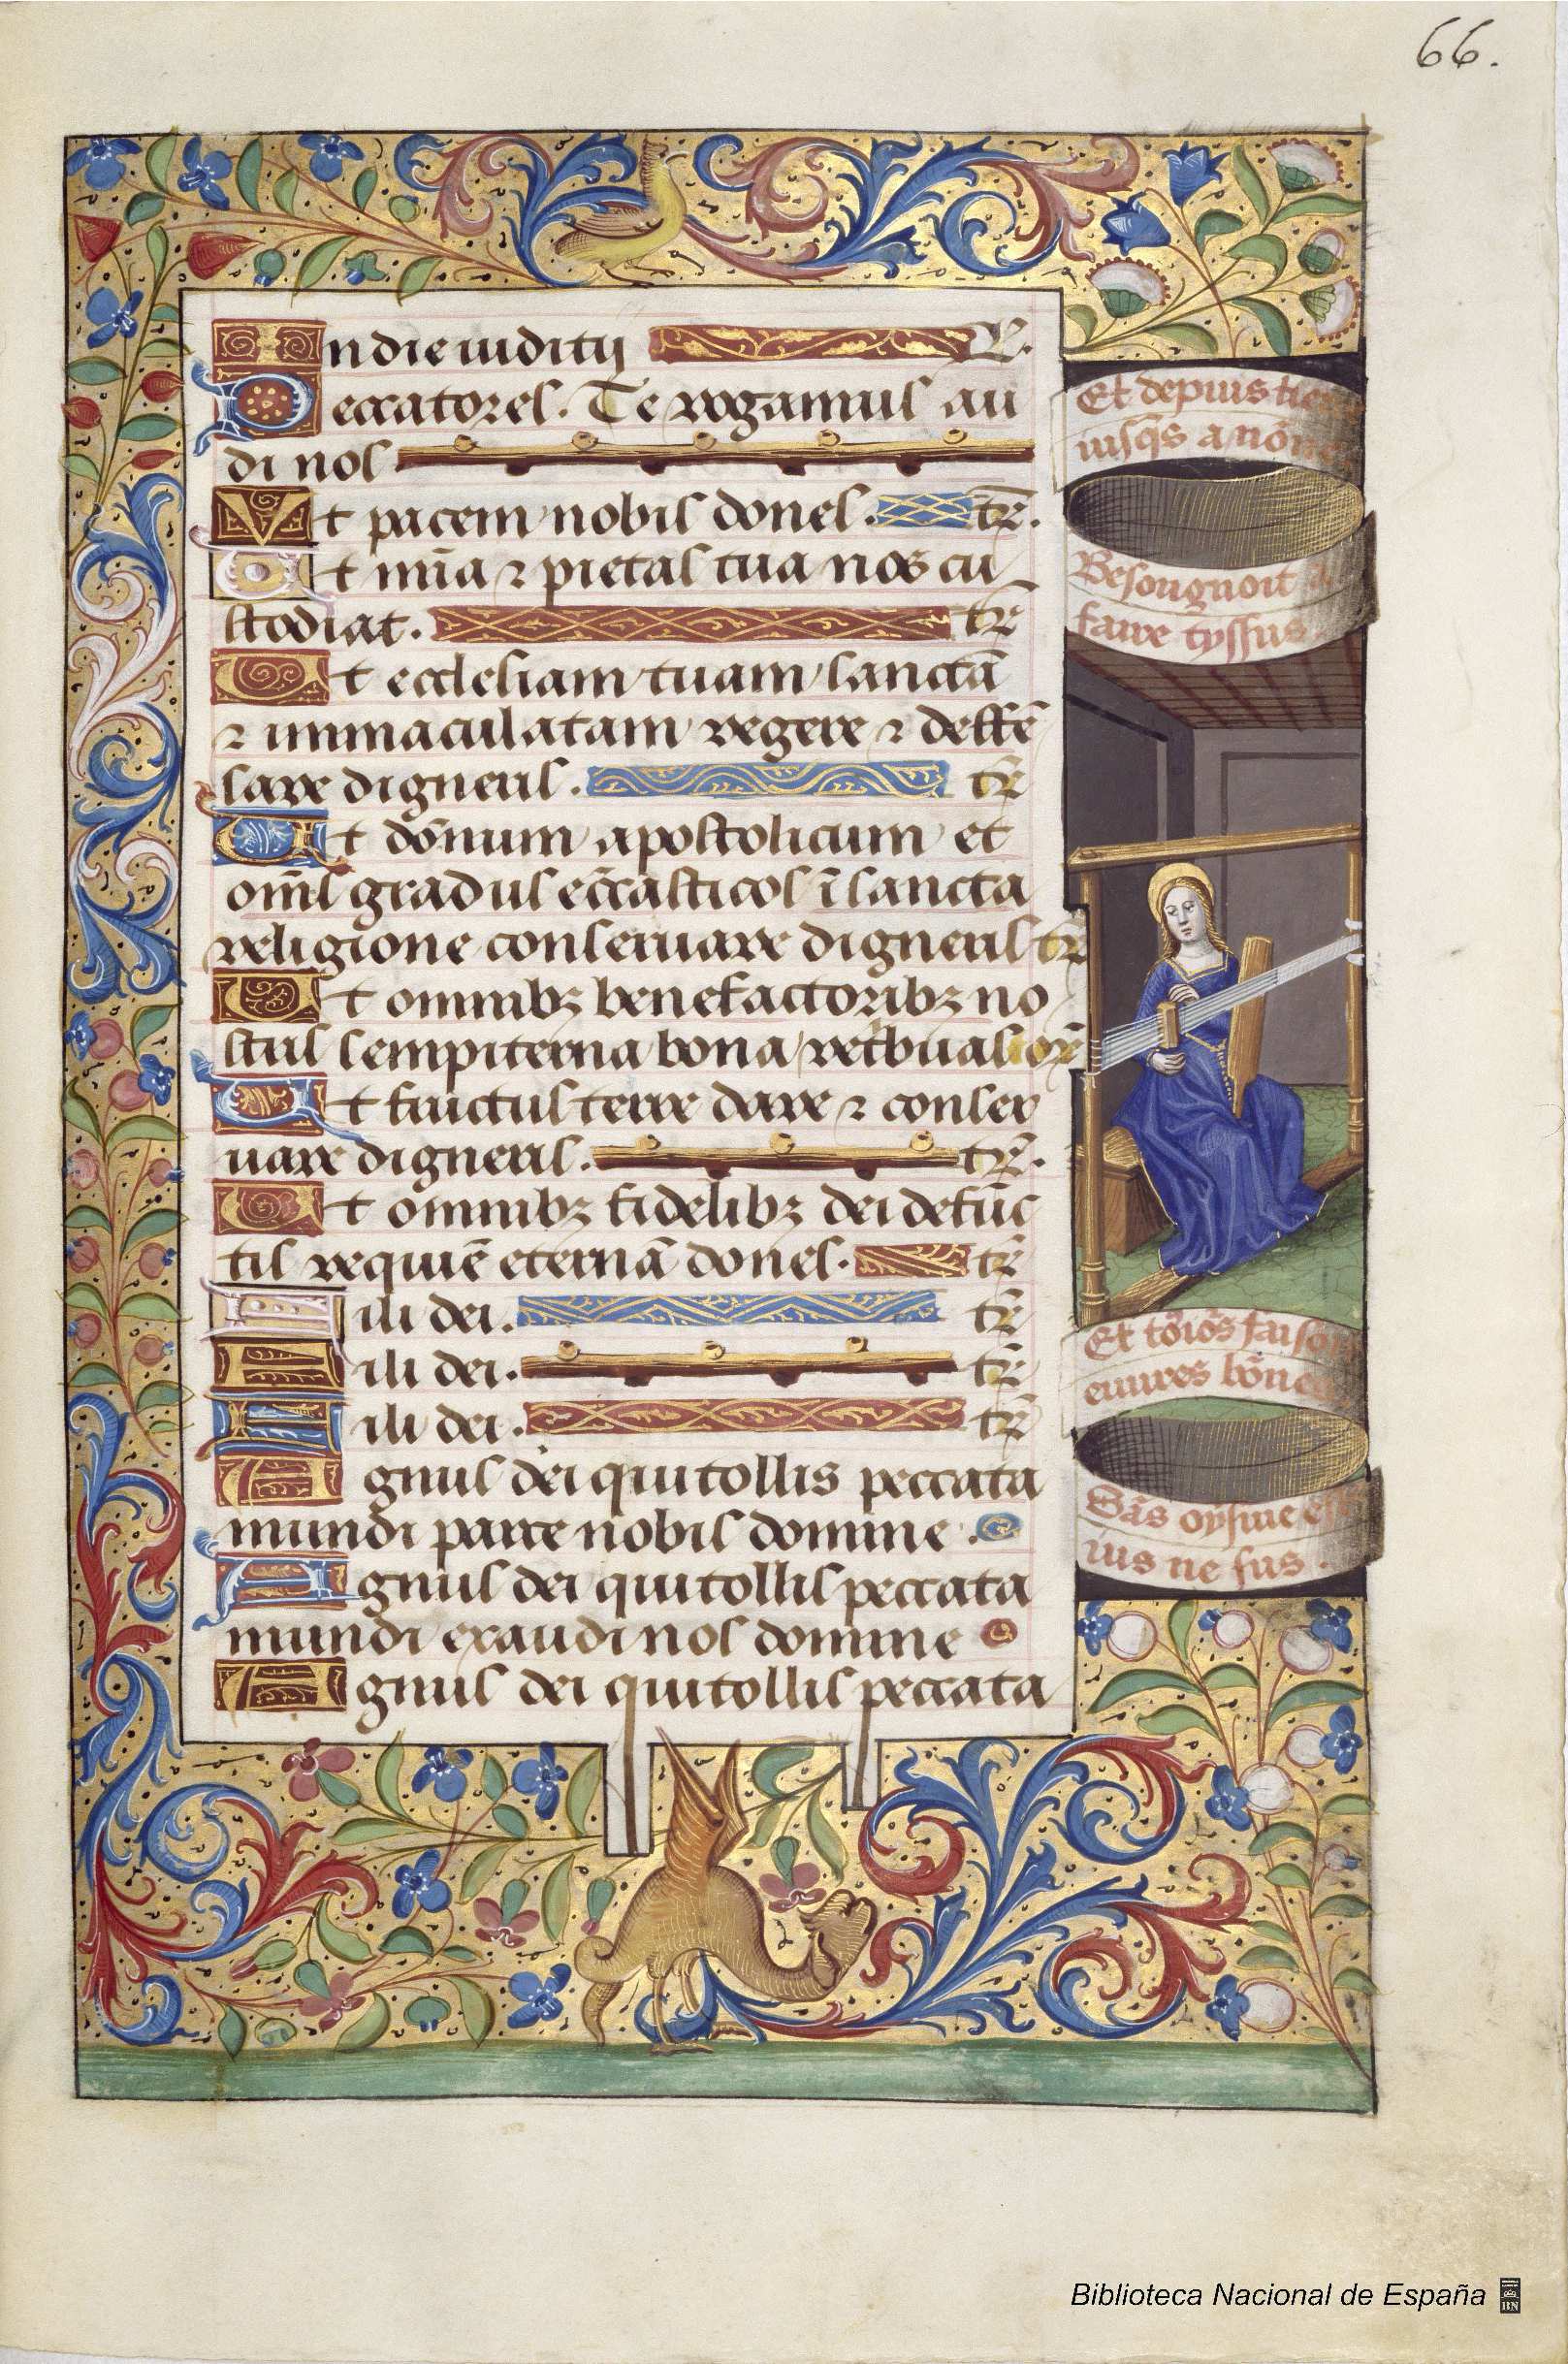 66.
In die iudicij L.
Peccatores. Te rogamus au
di nos
Vt pacem nobis dones. tr̄.
Vt mīa ⁊ pietas tua nos cu
stodiat. tr̄
Vt ecclesiam tuam sanctā
⁊ immaculatam regere ⁊ deffē
sare digneris. tr̄
Vt dōnum apostolicum et
om̄s gradus ecc̄asticos ī sancta
religione conseruare digneris tr̄
Vt omnibꝫ benefactoribꝫ no
stris sempiterna bona
Vt fructus terre dare ⁊ conser
uare digneris. tr̄.
Vt omnibꝫ fidelibꝫ dei defūc
tis requiē eternā dones. tr̄
Fili dei. tr̄
Fili dei. tr̄
Fili dei. tr̄
Agnus dei qui tollis peccata
mundi parce nobis domine.
Agnus dei qui tollis peccata
mundi exaudi nos domine
Agnus dei qui tollis peccata
Et depuis tierce
iusq̄s a nōne
Besongnoit a
faire tyssus
Et tōiōs faisoit
euures bōnes
Sās oysiue
ius ne fus.
Biblioteca Nacional de España
BN